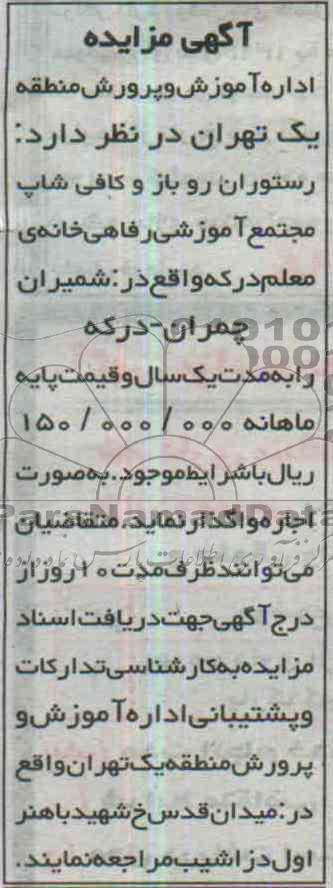 آگهی مزایده
اداره آموزش و پرورش منطقه
یک تهران در نظر دارد:
رستوران رو باز و کافی شاپ
مجتمع آموزشی رفاهی خانه‌ی
معلم درکه واقع در: شمیران
چمران-درکه
را به مدت یک سال و قیمت پایه
ماهانه ۱۵۰/۰۰۰/۰۰۰
ریال با شرایط موجود. به صورت
اجاره واگذار نماید. متقاضیان
می‌توانند ظرف مدت ۱۰ روز از
درج آگهی جهت دریافت اسناد
مزایده به کارشناسی تدارکات
و پشتیبانی اداره آموزش و
پرورش منطقه یک تهران واقع
در: میدان قدس خ شهید باهنر
اول دزاشیب مراجعه نمایند.
ParsNamadData